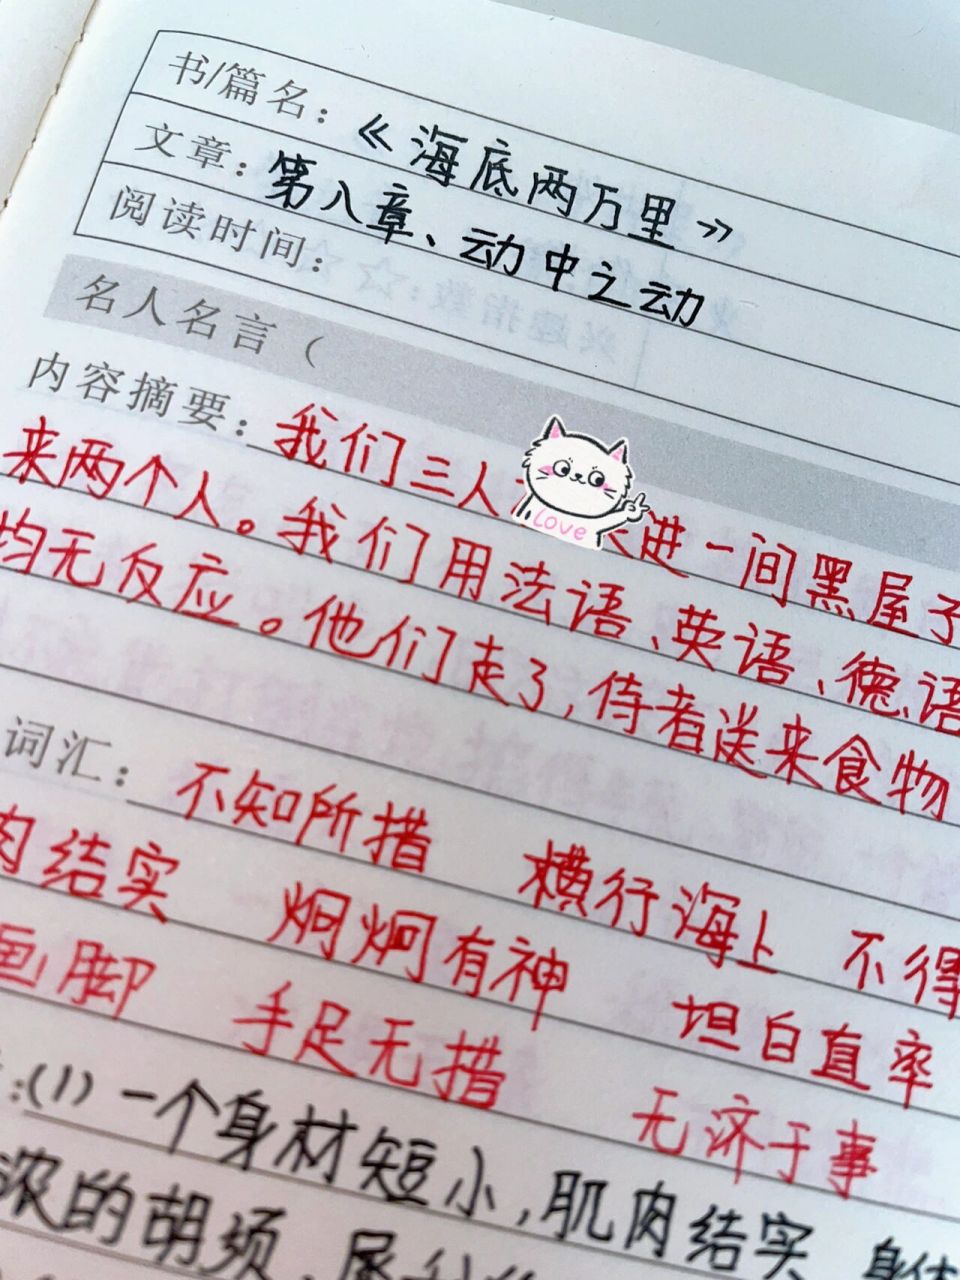 书/篇名：《海底两万里》
文章：第八章、动中之动
阅读时间：
名人名言（
内容摘要：我们三人 进一间黑屋子
来两个人。我们用法语、英语、德语
均无反应。他们走了，侍者送来食物
词汇：不知所措 横行海上 不得
肉结实 炯炯有神 坦白直率
画脚 手足无措 无济于事
：(1) 一个身材短小，肌肉结实 身体
浓的胡须
love